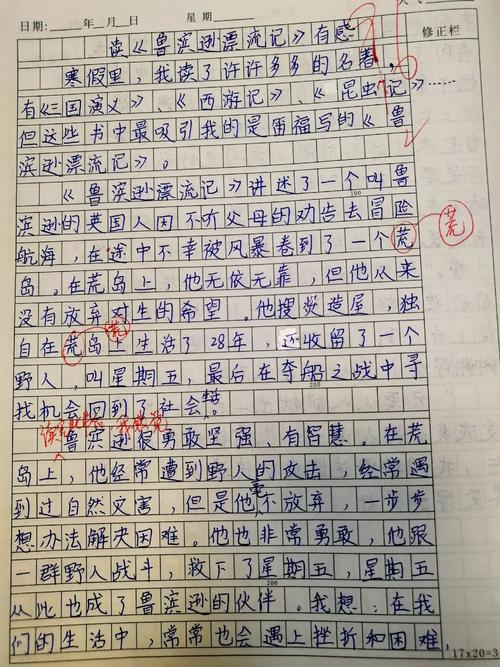 日期: 年 月 日 星期
修正栏
读《鲁滨逊漂流记》有感
寒假里，我读了许许多多的名著，
有《三国演义》、《西游记》、《昆虫记》……
但这些书中最吸引我的是雷福写的《鲁
滨逊漂流记》。
《鲁滨逊漂流记》讲述了一个叫鲁
100
滨逊的英国人因不听父母的劝告去冒险
航海，在途中不幸被风暴卷到了一个荒
荒
岛。在荒岛上，他无依无靠，但他从来
没有放弃对生的希望。他搜炎造屋，独
荒
自在荒岛上生活了28年，还收留了一个
野人，叫星期五，最后在夺船之战中寻
200
找机会回到了社会。
鲁滨逊很勇敢坚强、有智慧。在荒
岛上，他经常遭到野人的攻击，经常遇
到过自然灾害，但是他毫不放弃，一步步
想办法解决困难。他也非常勇敢，他跟
一群野人战斗，救下了星期五，星期五
300
从此也成了鲁滨逊的伙伴。我想：在我
们的生活中，常常也会遇上挫折和困难，
17×20=3